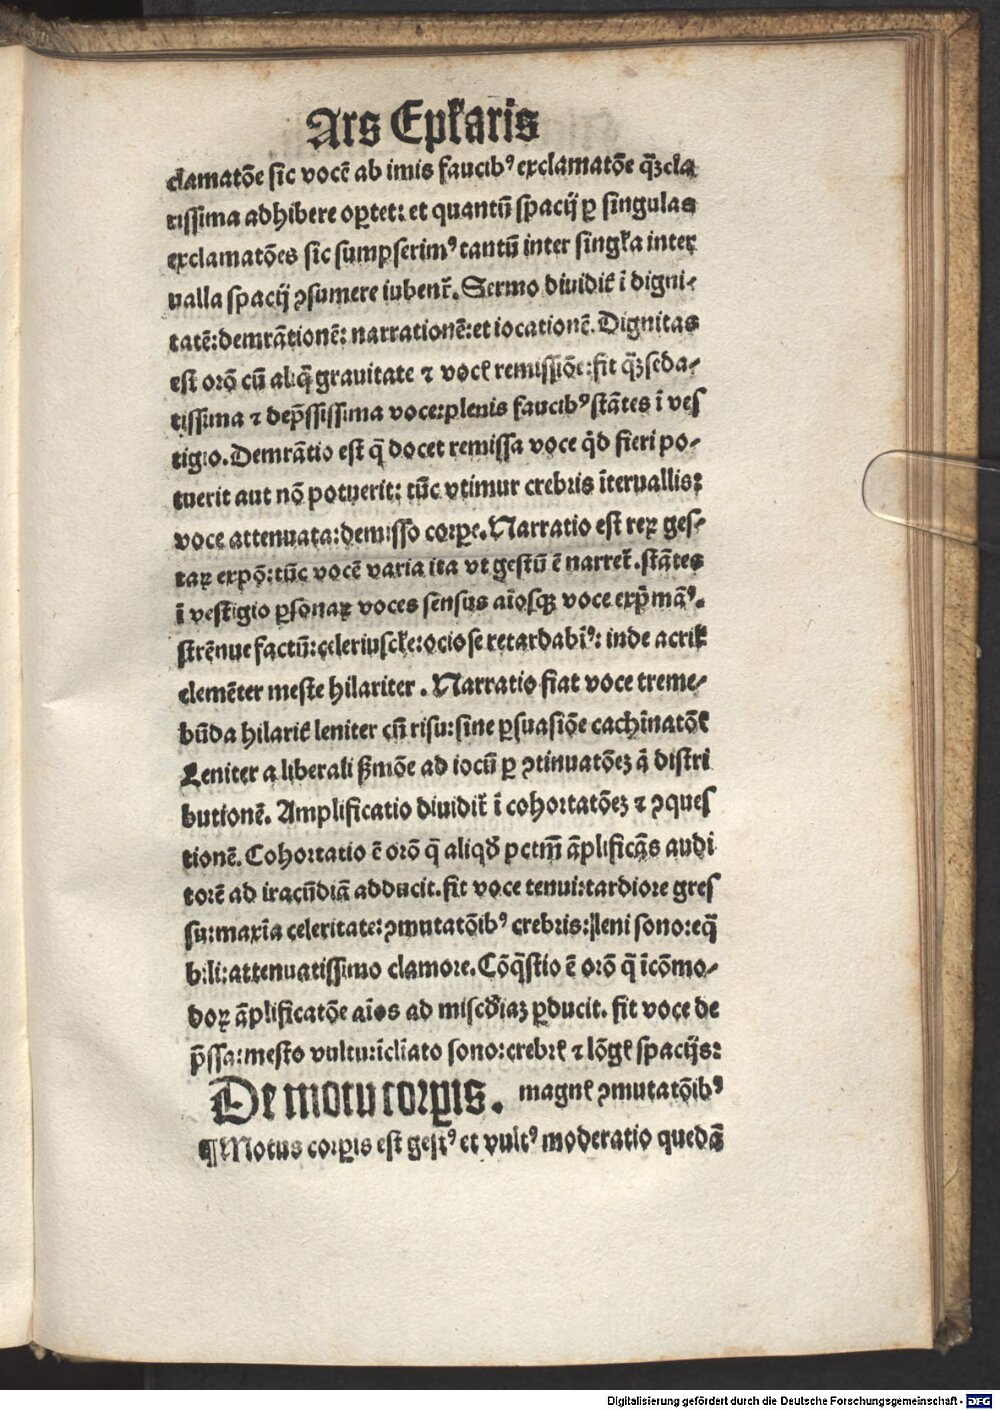 Ars Epľaris
clamatōe sic vocē ab imis faucibꝰ exclamatōe qꝫ̄cla
rissima adhibere oꝑtet: et quantū spacij ꝑ singulas
exclamatōes sic sumpserimꝰ tantū inter singľa inter
ualla spacij ꝯsumere iubent᷑. Sermo diuidit᷑ ī digni⸗
tatē: demrātionē: narrationē: et iocationē. Dignitas
est orō cū aliq̄ grauitate ⁊ vocꝭ remissiōe: fit qꝫ̄ seda⸗
tissima ⁊ dep̄ssissima voce: plenis faucibꝰ stātes ī ves
tigio. Demrātio est q̄ docet remissa voce qd̄ fieri po⸗
tuerit aut nō potuerit: tūc vtimur crebris īteruallis:
voce attenuata: demisso corꝑe. Narratio est reꝝ ges⸗
taꝝ expō: tūc vocē varia ita vt gestū ē narret᷑. stātes
ī vestigio ꝑsonaꝝ voces sensus aīosqꝫ voce exp̄māꝰ.
strēnue factū: celeriuscľe: ociose retardabīꝰ: inde acrit᷑
clemēter meste hilariter. Narratio fiat voce treme⸗
būda hilarit᷑ leniter cū risu: sine ꝑsuasiōe cachīnatōꝭ
Leniter a liberali ẞmōe ad iocū ꝑ ꝯtinuatōeꝫ ā distri
butionē. Amplificatio diuidit᷑ ī cohortatōeꝫ ⁊ ꝯques
tionē. Cohortatio ē orō q̄ aliqd̄ pctm̄ āplificās audi
torē ad iracūdiā adducit. fit voce tenui: tardiore gres
su: maxīa celeritate: ꝯmutatōibꝰ crebris: leni sono: eq̄
bili: attenuatissimo clamore. Cōq̄stio ē orō q̄ īcōmo⸗
doꝝ āplificatōe aīos ad misc̄diaꝫ ꝑducit. fit voce de
p̄ssa: mesto vultu: īclīato sono: crebrꝭ ⁊ lōgꝭ spacijs:
De motu corꝑis. magnꝭ ꝯmutatōibꝰ
¶Motus corꝑis est gestꝰ et vultꝰ moderatio quedā
Digitalisierung gefördert durch die Deutsche Forschungsgemeinschaft - DFG